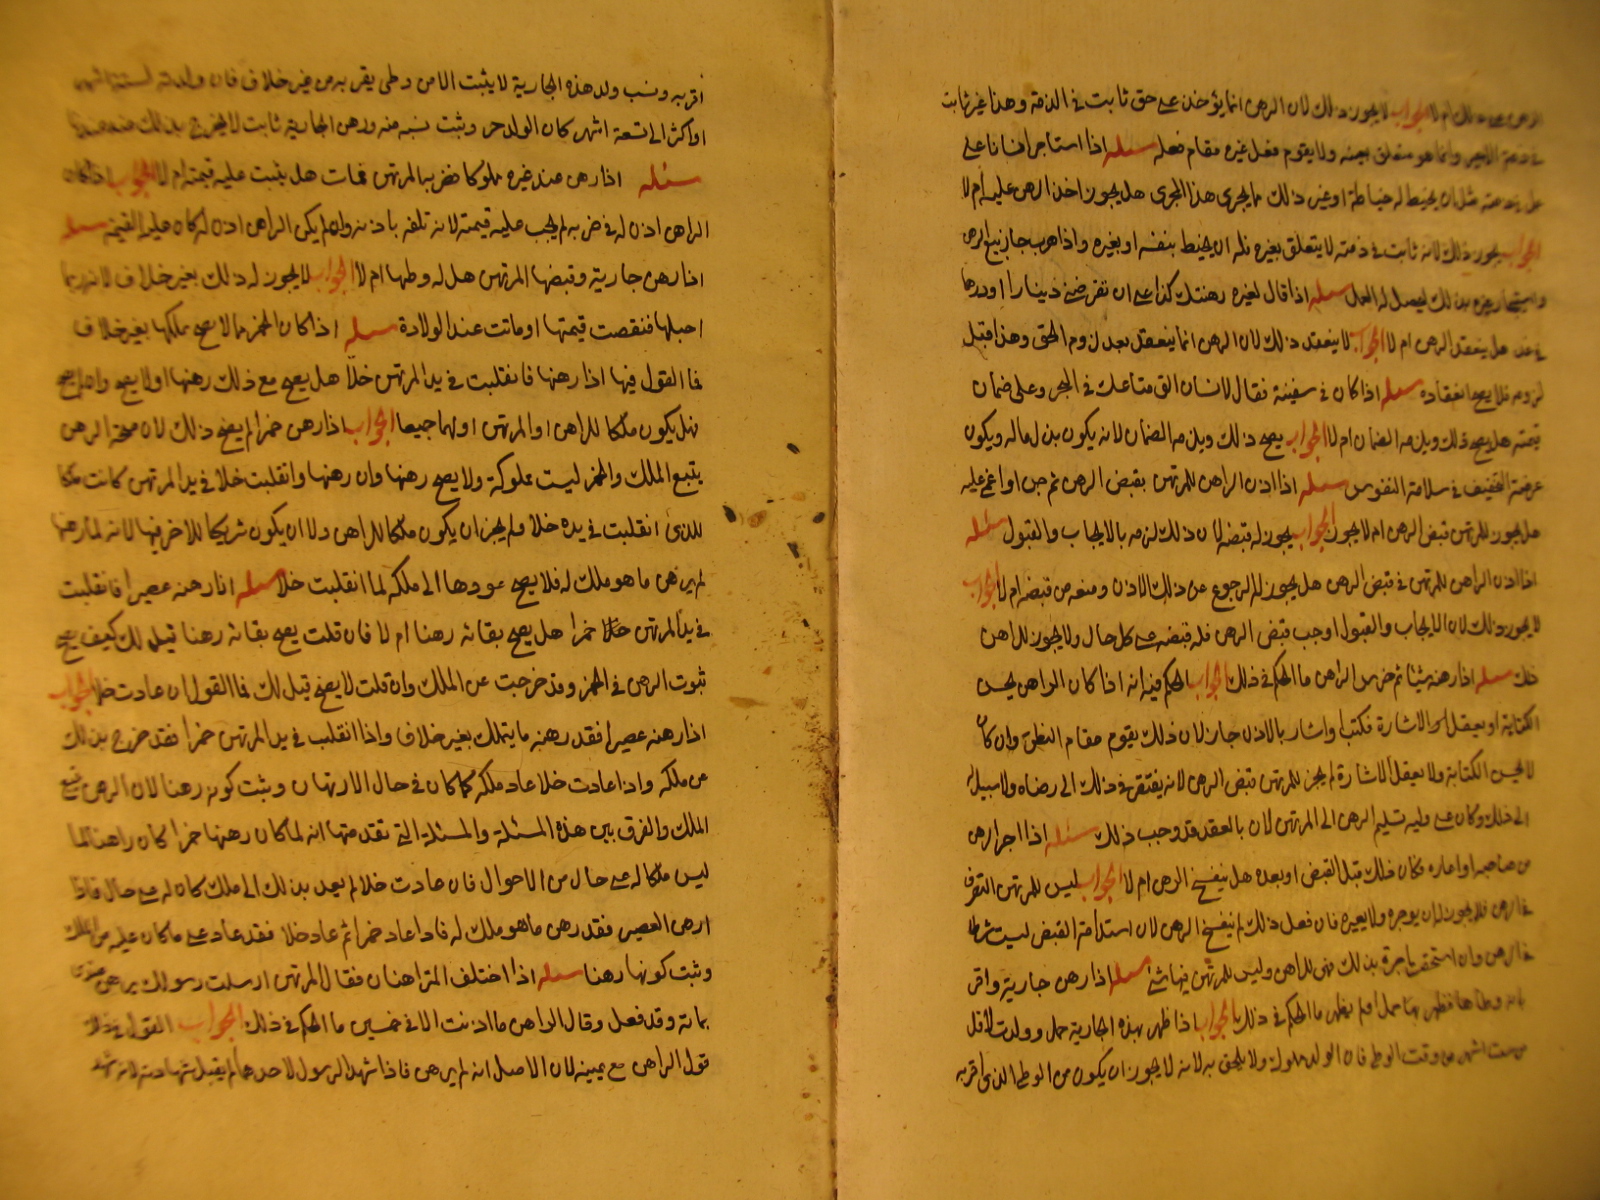 الرهن على ذلك ام لا الجواب لا يجوز ذلك لان الرهن انما يؤخذ على حق ثابت في الذمة وهذا غير ثابت
في ذمة الاجير وانما هو متعلق بعينه ولا يقوم فعل غيره مقام فعله مسئله اذا استاجر انسانا على
عمل في ذمته مثل ان يخيط له خياطة او غير ذلك مما يجرى هذا المجرى هل يجوز اخذ الرهن عليه ام لا
الجواب يجوز ذلك لانه ثابت في ذمته لا يتعلق بغيره فله ان يخيط بنفسه او بغيره واذا هرب جاز بيع الرهن
واستيجار غيره بذلك ليعمل له العمل مسئله اذا قال لغيره رهنتك كذا على ان تقرضني دينارا او درهما
في غد هل ينعقد الرهن ام لا الجواب لا ينعقد ذلك لان الرهن انما ينعقد بعد لزوم الحق وهذا قبل
لزومه فلا يصح انعقاده مسئله اذا كان في سفينة فقال لانسان الق متاعك في البحر وعلى ضمان
قيمته هل يصح ذلك ويلزمه الضمان ام لا الجواب يصح ذلك ويلزمه الضمان لانه يكون بذل ماله ويكون
غرضه التخفيف في سلامة النفوس مسئله اذا اذن الراهن للمرتهن بقبض الرهن ثم جن او اغمى عليه
هل يجوز للمرتهن قبض الرهن ام لا يجوز الجواب يجوز له قبضه لان ذلك لزمه بالايجاب والقبول مسئله
اذا اذن الراهن للمرتهن في قبض الرهن هل يجوز له الرجوع عن ذلك الاذن ومنعه من قبضه ام لا الجواب
لا يجوز ذلك لان الايجاب والقبول اوجب قبض الرهن فله قبضه على كل حال ولا يجوز للراهن
ذلك مسئله اذا رهنه شيئا ثم خرس الراهن ما الحكم في ذلك الجواب الحكم فيه انه اذا كان الراهن يحسن
الكتابة او يعقل الاشارة فكتب او اشار بالاذن جاز لان ذلك يقوم مقام النطق وان كان
لا يحسن الكتابة ولا يعقل الاشارة لم يجز للمرتهن قبض الرهن لانه يفتقر في ذلك الى رضاه ولا سبيل له
الى ذلك وكان على وليه تسليم الرهن الى المرتهن لان بالعقد قد وجب ذلك مسئله اذا اجر الرهن
من صاحبه او اعاره فكان ذلك قبل القبض او بعده هل ينفسخ الرهن ام لا الجواب ليس للمرتهن التصرف
في الرهن فلا يجوز له ان يوجره ولا يعيره فان فعل ذلك لم ينفسخ الرهن لان استدامة القبض ليست شرطا
في الرهن وان استحقت باجرة بذلك فهى للراهن وليس للمرتهن فيها شئ مسئله اذا رهن جارية واقر
بانه وطاها فظهر بها حمل او لم يظهر ما الحكم في ذلك الجواب اذا ظهر بهذه الجارية حمل وولدت لاقل
من ستة اشهر من وقت الوطى فان الولد مملوك ولا يلحق به لانه لا يجوز ان يكون من الوطى الذى اقر به
اقر به ونسب ولد هذه الجارية لا يثبت الا من وطى يقر به من غير خلاف فان ولدته لستة اشهر
او اكثر الى تسعة اشهر كان الولد حر وثبت نسبه منه ورهن الجارية ثابت لا يخرج بذلك
مسئله اذا رهن عند غيره مملوكا فضربه المرتهن فمات هل يثبت عليه قيمته ام لا الجواب اذا كان
الراهن اذن له في ضربه لم يجب عليه قيمته لانه تلف باذنه وان لم يكن الراهن اذن له كان عليه القيمة مسئله
اذا رهن جارية وقبضها المرتهن هل له وطيها ام لا الجواب لا يجوز له ذلك بغير خلاف لانه ربما
احبلها فنقصت قيمتها او ماتت عند الولادة مسئله اذا كان الخمر مما لا يصح ملكها بغير خلاف
فما القول فيها اذا رهنها فانقلبت في يد المرتهن خلا هل يصح مع ذلك رهنها او لا يصح وان لم يصح
فهل يكون ملكا للراهن او المرتهن او لهما جميعا الجواب اذا رهن خمرا لم يصح ذلك لان صحة الرهن
يتبع الملك والخمر ليست مملوكة ولا يصح رهنها وان رهنها وانقلبت خلا في يد المرتهن كانت ملكا
للذى انقلبت في يده خلا ولم يجز ان يكون ملكا للراهن ولا ان يكون شريكا للاخر فيها لانه لما رهنها
لم يرهن ما هو ملك له فلا يصح عودها الى ملكه لما انقلبت خلا مسئله اذا رهنه عصيرا فانقلبت
في يد المرتهن خمرا هل يصح بقائه رهنا ام لا فان قلت يصح بقائه رهنا قيل لك كيف يصح
ثبوت الرهن في الخمر وقد خرجت عن الملك وان قلت لا يصح قيل لك فما القول ان عادت خلا الجواب
اذا رهنه عصيرا فقد رهنه ما يتملك بغير خلاف واذا انقلب في يد المرتهن خمرا فقد خرج بذلك
عن ملكه واذا عادت خلا عاد ملكه كما كان في حال الارتهان وثبت كونه رهنا لان الرهن تبع
الملك والفرق بين هذه المسئلة والمسئلة التي تقدمتها انه لما كان رهنها خمرا كان راهنا لما
ليس ملكا له على حال من الاحوال فان عادت خلا لم يعد بذلك الى ملك كان له على حال فاذا
ارهن العصير فقد رهن ما هو ملك له فاذا عاد خمرا ثم عاد خلا فقد عاد على ما كان عليه من الملك
وثبت كونها رهنا مسئله اذا اختلف المتراهنان فقال المرتهن ارسلت رسولك يرهن عندى
بمائة وقد فعل وقال الراهن ما اذنت الا في خمسين ما الحكم في ذلك الجواب القول في ذلك
قول الراهن مع يمينه لان الاصل انه لم يرهن فاذا شهد الرسول لاحدهما لم يقبل شهادته لانه شهد